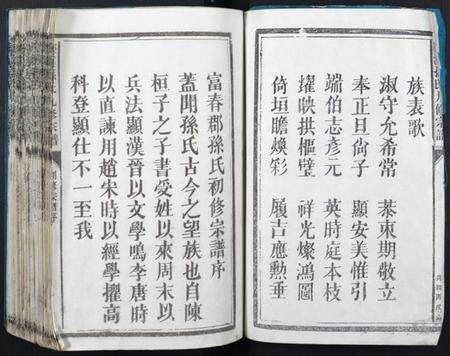 族表歌
淑守允希常 恭東期敬立
奉正旦尙子 顯安美惟引
端伯志彦元 英時庭本枝
擢映拱樞璧 祥光燦鴻圖
倚垣瞻煥彩 履吉應勲垂
富春郡孫氏初修宗譜序
蓋聞孫氏古今之望族也自陳
桓子之子書受姓以來周末以
兵法顯漢晉以文學鳴李唐時
以直諫用趙宋時以經學擢高
科登顯仕不一至我